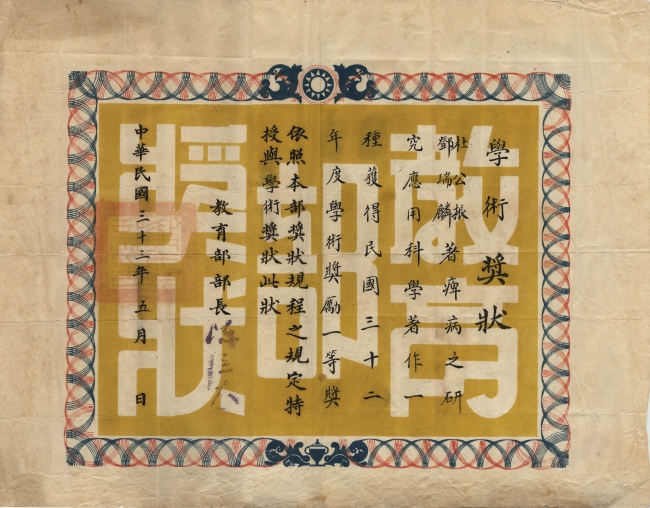 教育部獎狀
學術獎狀
杜公振
鄧瑞麟著痺病之研
究應用科學著作一
種獲得民國三十二
年度學術獎勵一等獎
依照本部獎狀規程之規定特
授與學術獎狀此狀
教育部部長 陳立夫
中華民國三十三年五月 日